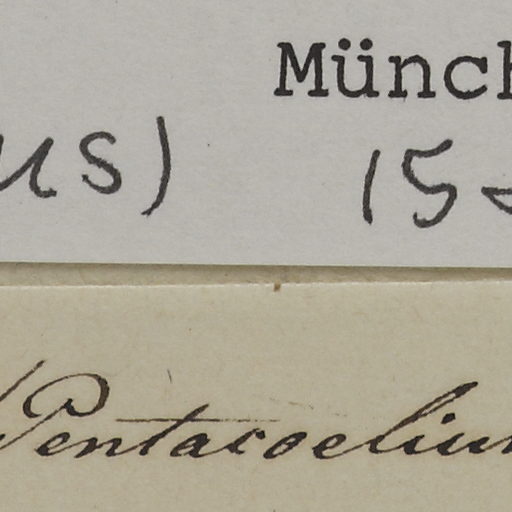 Münch
us) 15
Pentacoeliu